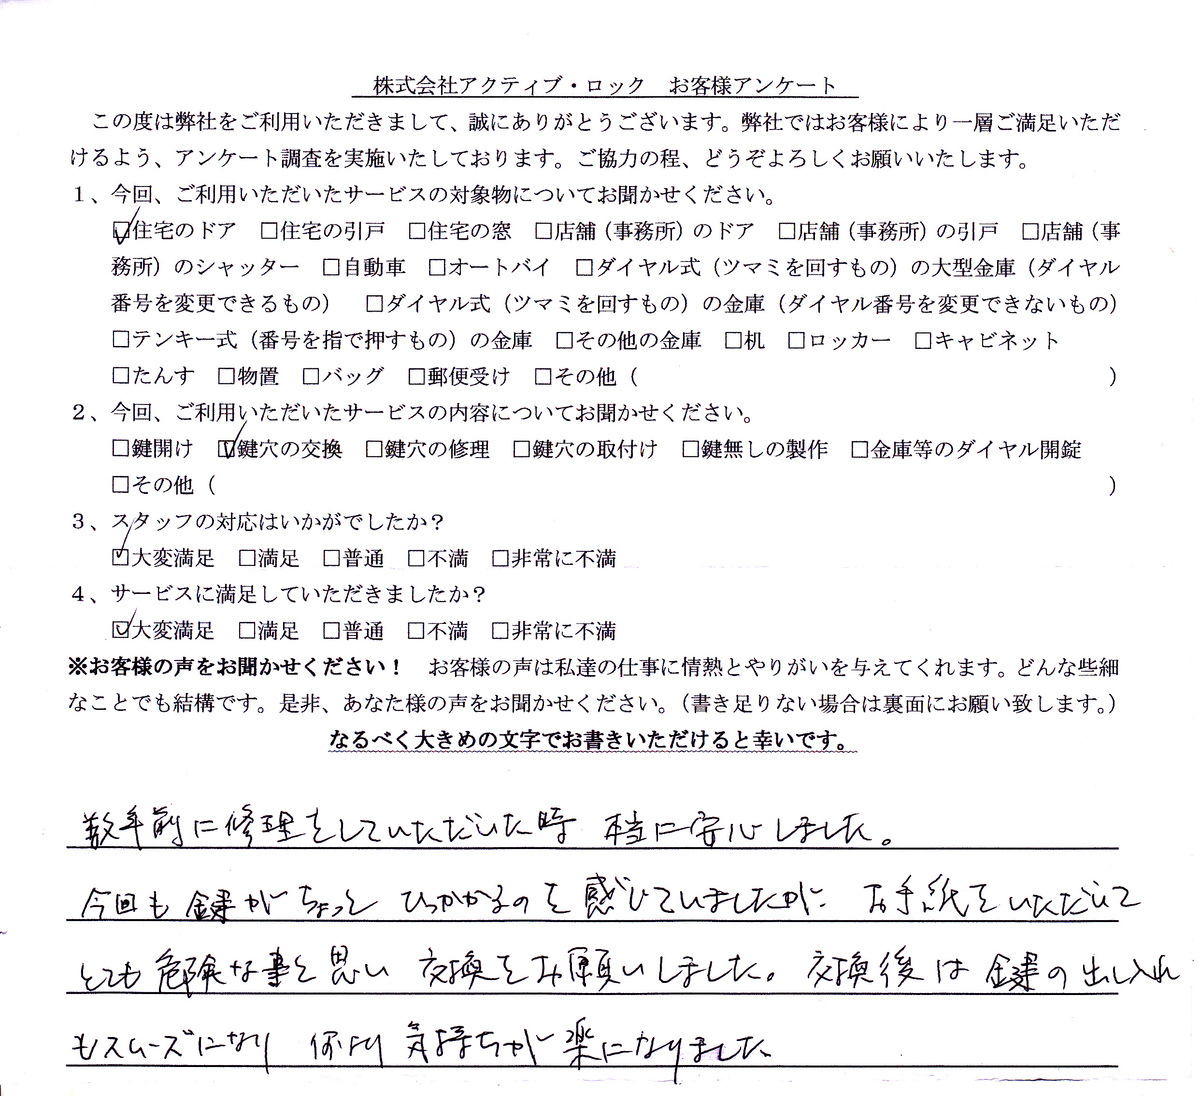 株式会社アクティブ・ロック　お客様アンケート
この度は弊社をご利用いただきまして、誠にありがとうございます。弊社ではお客様により一層ご満足いただ
けるよう、アンケート調査を実施いたしております。ご協力の程、どうぞよろしくお願いいたします。
１、今回、ご利用いただいたサービスの対象物についてお聞かせください。
☑住宅のドア　□住宅の引戸　□住宅の窓　□店舗（事務所）のドア　□店舗（事務所）の引戸　□店舗（事
務所）のシャッター　□自動車　□オートバイ　□ダイヤル式（ツマミを回すもの）の大型金庫（ダイヤル
番号を変更できるもの）　□ダイヤル式（ツマミを回すもの）の金庫（ダイヤル番号を変更できないもの）
□テンキー式（番号を指で押すもの）の金庫　□その他の金庫　□机　□ロッカー　□キャビネット
□たんす　□物置　□バッグ　□郵便受け　□その他（　　　）
２、今回、ご利用いただいたサービスの内容についてお聞かせください。
□鍵開け　☑鍵穴の交換　□鍵穴の修理　□鍵穴の取付け　□鍵無しの製作　□金庫等のダイヤル開錠
□その他（　　　）
３、スタッフの対応はいかがでしたか？
☑大変満足　□満足　□普通　□不満　□非常に不満
４、サービスに満足していただきましたか？
☑大変満足　□満足　□普通　□不満　□非常に不満
※お客様の声をお聞かせください！　お客様の声は私達の仕事に情熱とやりがいを与えてくれます。どんな些細
なことでも結構です。是非、あなた様の声をお聞かせください。（書き足りない場合は裏面にお願い致します。）
なるべく大きめの文字でお書きいただけると幸いです。
数年前に修理をしていただいた時 本当に安心しました。
今回も鍵がちょっと ひっかかるのを感じていましたが、お手紙をいただいて
とても危険な事と思い 交換をお願いしました。交換後は鍵の出し入れ
もスムーズになり 何より 気持ちが楽になりました。